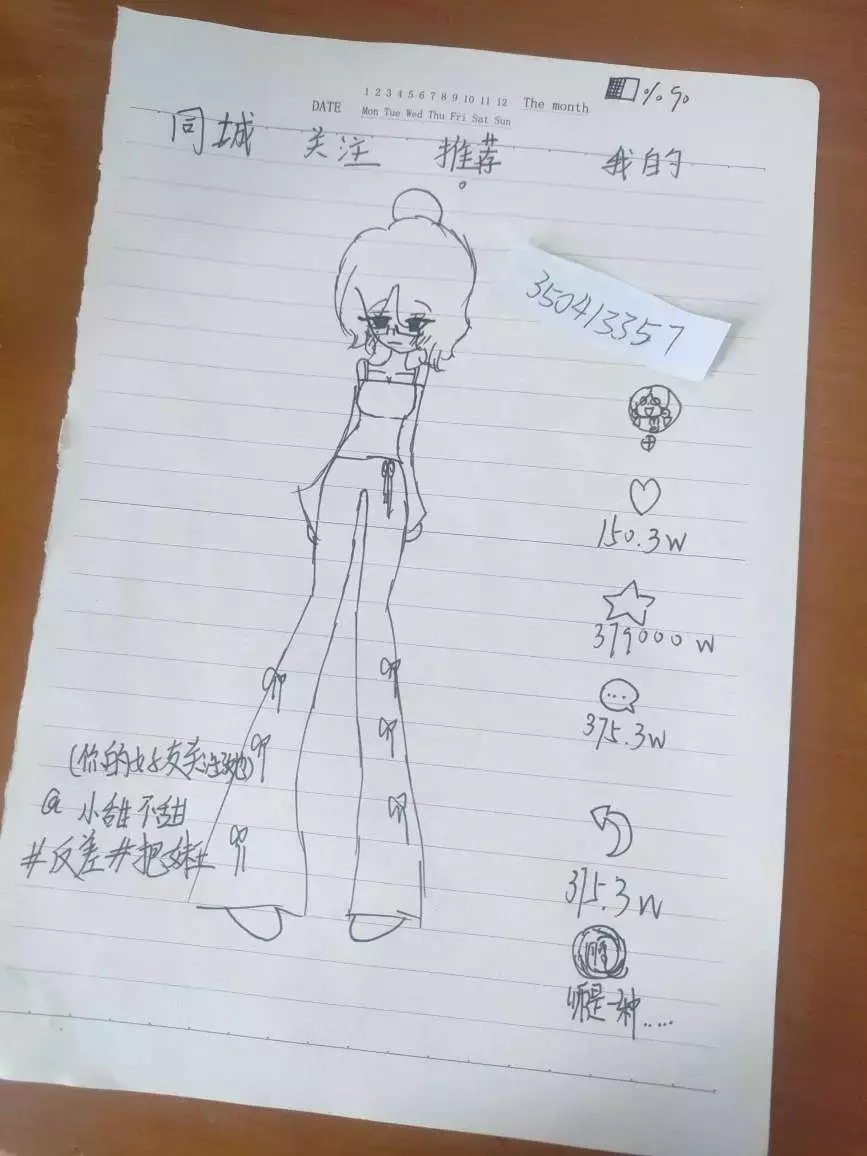 1 2 3 4 5 6 7 8 9 10 11 12 The month
DATE Mon Tue Wed Thu Fri Sat Sun
同城 关注 推荐 我的
350413357
150.3W
379000W
375.3W
(你的好友关注她)
@小甜不甜
#反差#把妹
375.3W
是一种.....